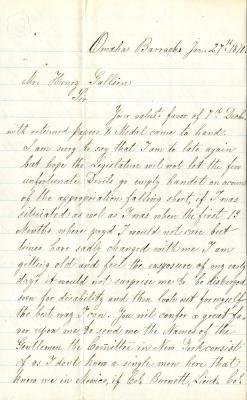 Omaha Barracks Jan. 27th 1871
Mr Henry Gallien
Sir
Your valued favor of 7th Decbr
with returned papers & Medal came to hand.
I am sorry to say that I am to late again
but hope the Legislature will not let the few
unfortunate Devils go empty handet on account
of the appropriation falling short, if I was
situated as well as I was when the first 13
Months where payd I would not care but
times have sadly changed with me I am
getting old and feel the exposure of my early
days it would not surprise me to be discharged
soon for disability and then look out for myself
the best way I can. You will confer a great fa-
vor upon me to send me the Names of the
Gentlemen the Comittee in New York consist
of as I dont know a single man here that
know me in Mexico, if Col Burnett, Lieut Col